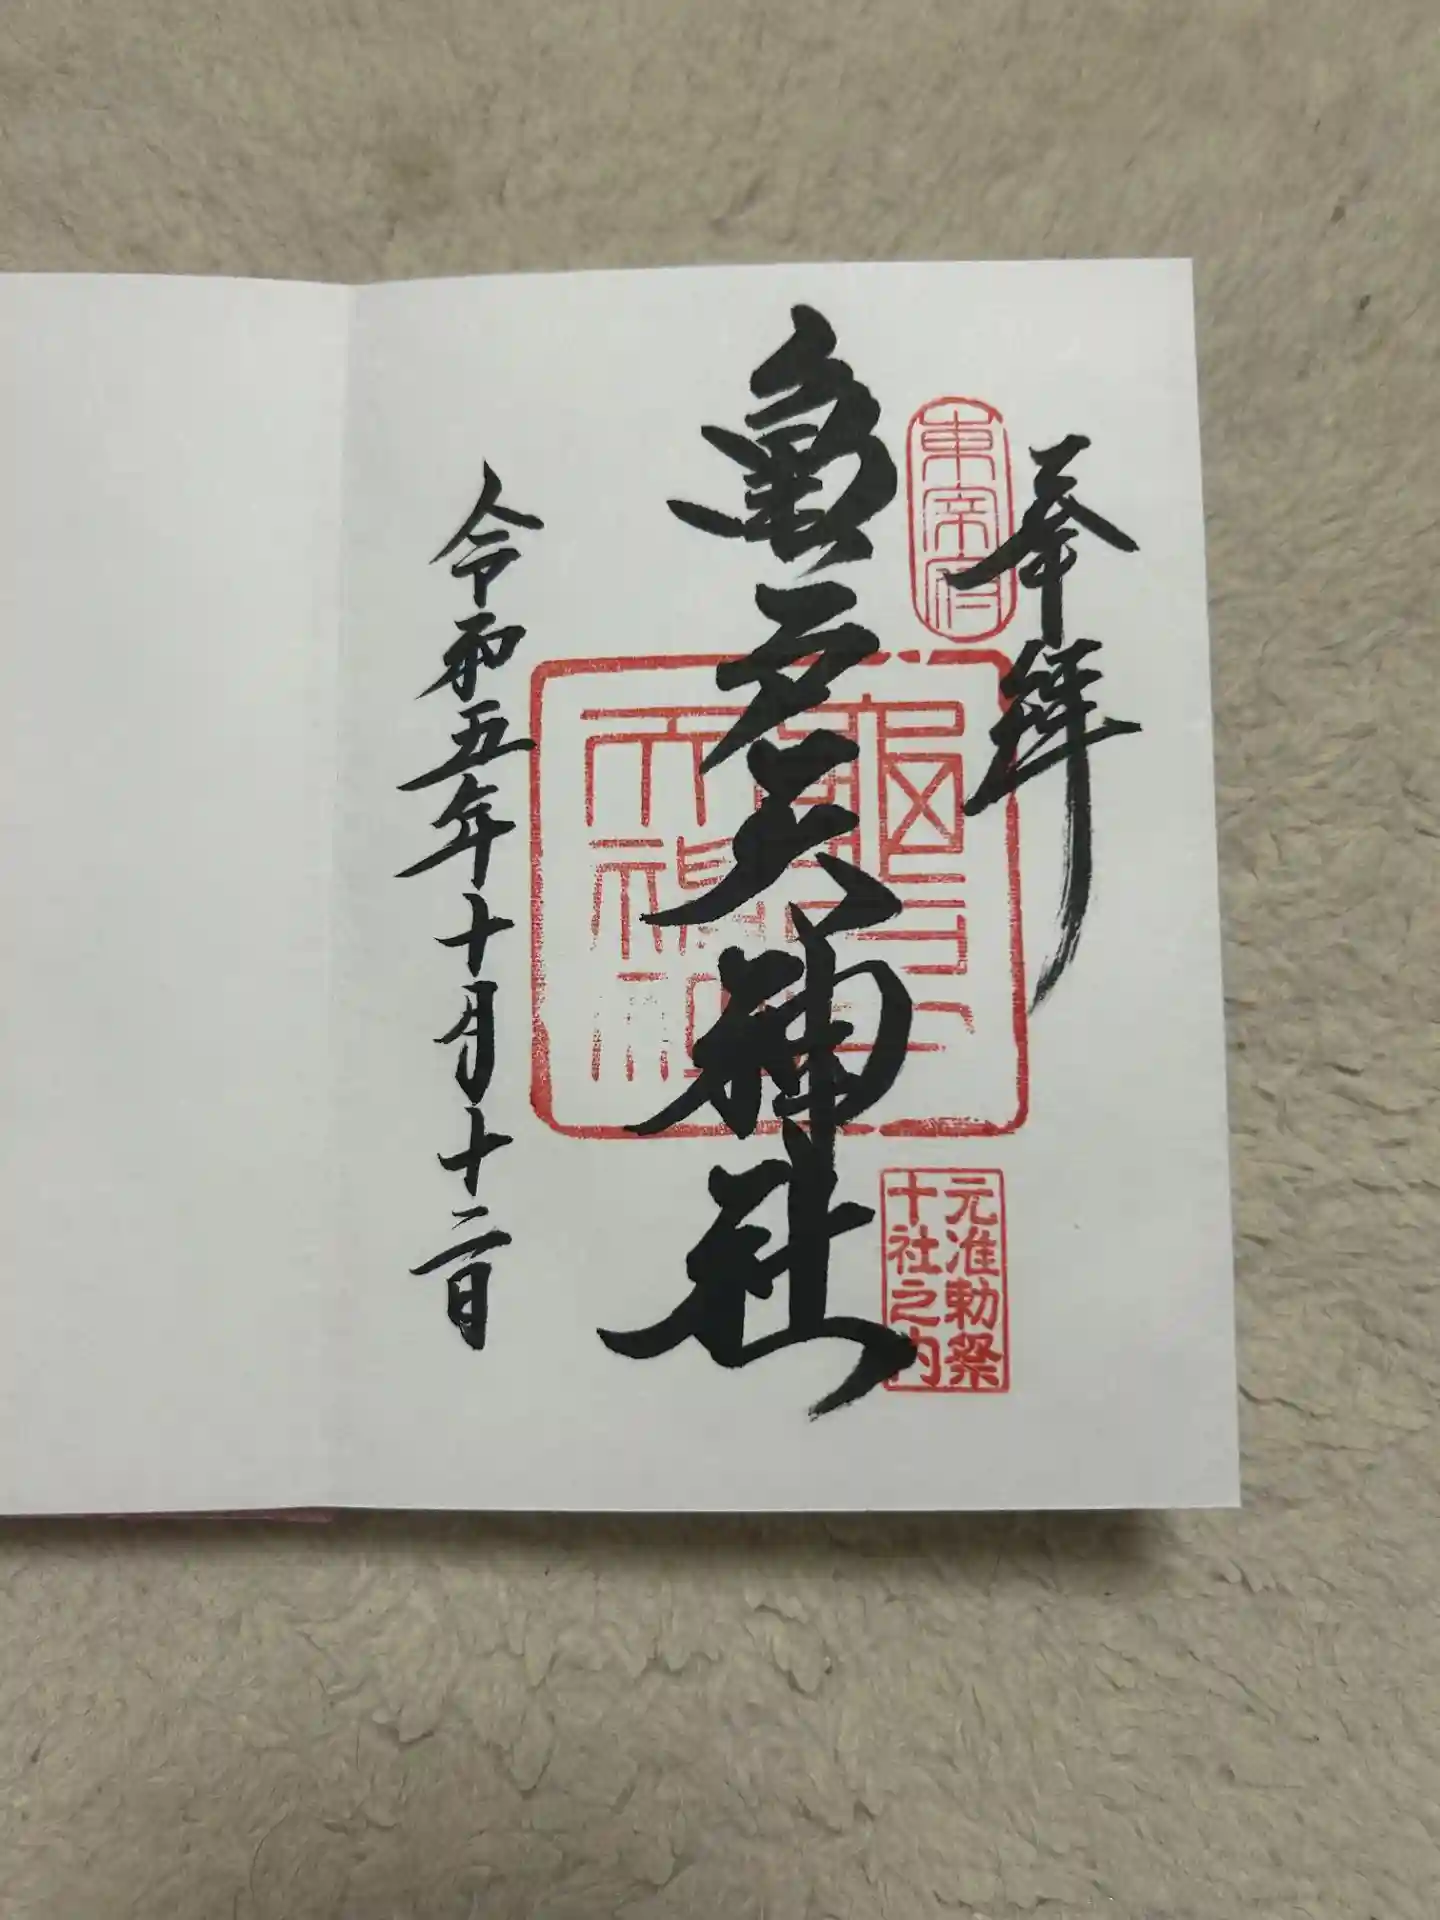 奉拝
東宰府
亀戸天神社
元准勅祭
十社之内
令和五年十月十二日